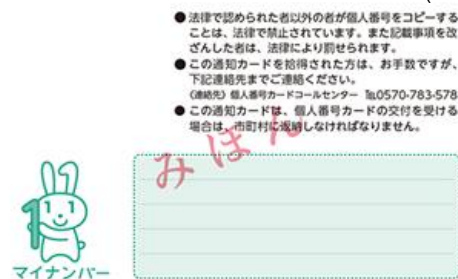 ●法律で認められた者以外の者が個人番号をコピーする
ことは、法律で禁止されています。また記載事項を改
ざんした者は、法律により罰せられます。
●この通知カードを拾得された方は、お手数ですが、
下記連絡先までご連絡ください。
(連絡先) 個人番号カードコールセンター ℡0570-783-578
●この通知カードは、個人番号カードの交付を受ける
場合は、市町村に返納しなければなりません。
みほん
1
マイナンバー